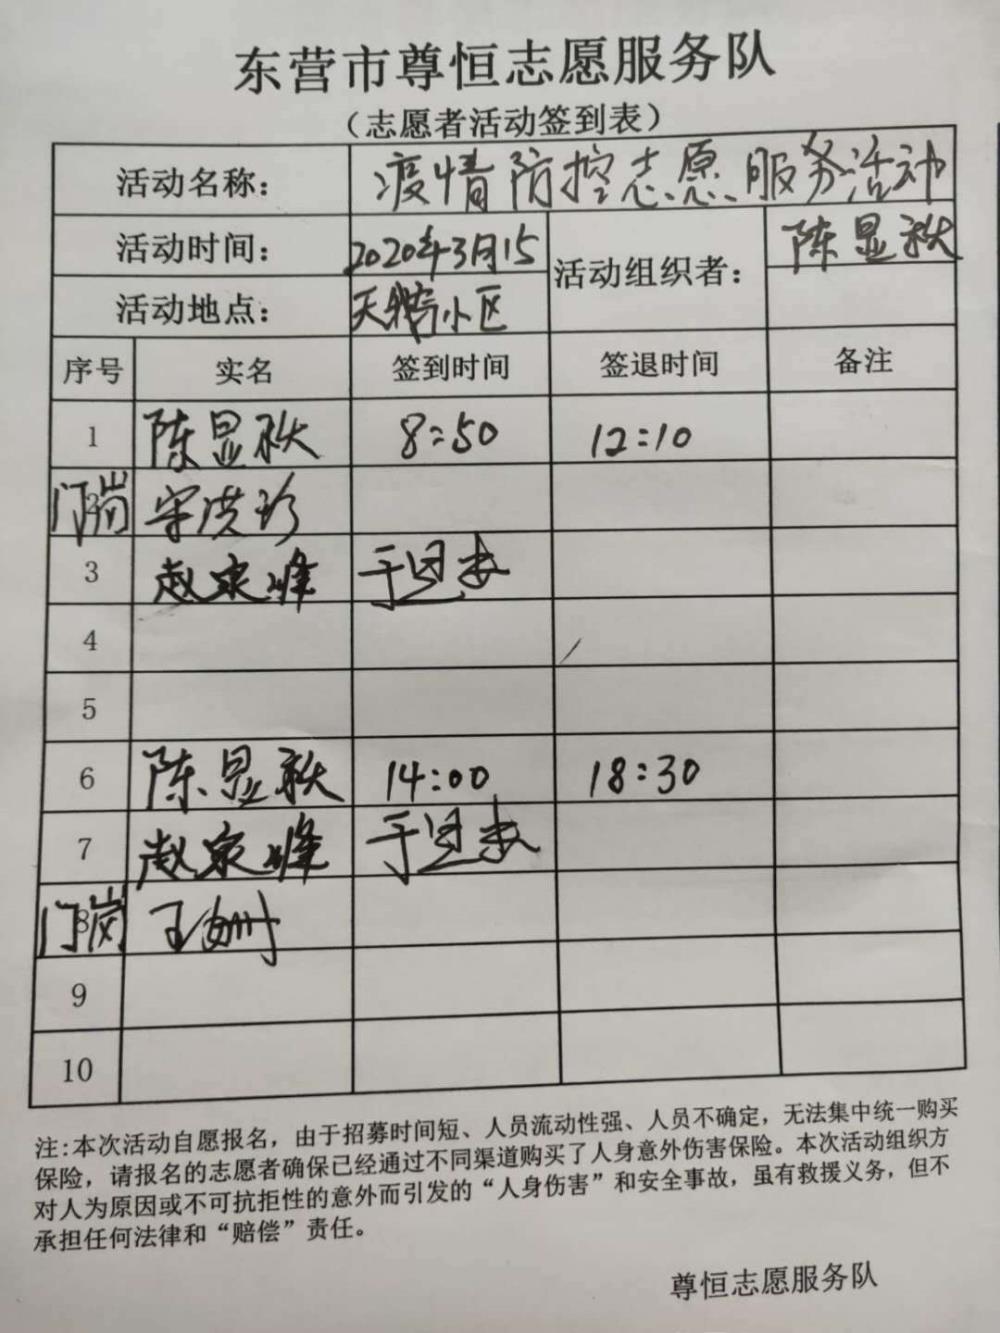 东营市尊恒志愿服务队
（志愿者活动签到表）
活动名称： 疫情防控志愿服务活动
活动时间： 2020年3月15 活动组织者： 陈显秋
活动地点： 天鹅小区
序号 实名 签到时间 签退时间 备注
1 陈显秋 8:50 12:10
门岗 2 宋洪珍
3 赵家峰 于
4
5
6 陈显秋 14:00 18:30
7 赵家峰 于
门岗 8 王
9
10
注:本次活动自愿报名，由于招募时间短、人员流动性强、人员不确定，无法集中统一购买
保险，请报名的志愿者确保已经通过不同渠道购买了人身意外伤害保险。本次活动组织方
对人为原因或不可抗拒性的意外而引发的“人身伤害”和安全事故，虽有救援义务，但不
承担任何法律和“赔偿”责任。
尊恒志愿服务队